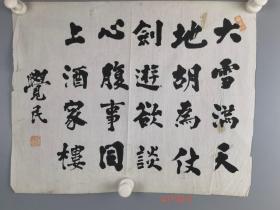 大雪满天
地胡為仗
劍遊欲談
心腹事同
上酒家樓
覺民